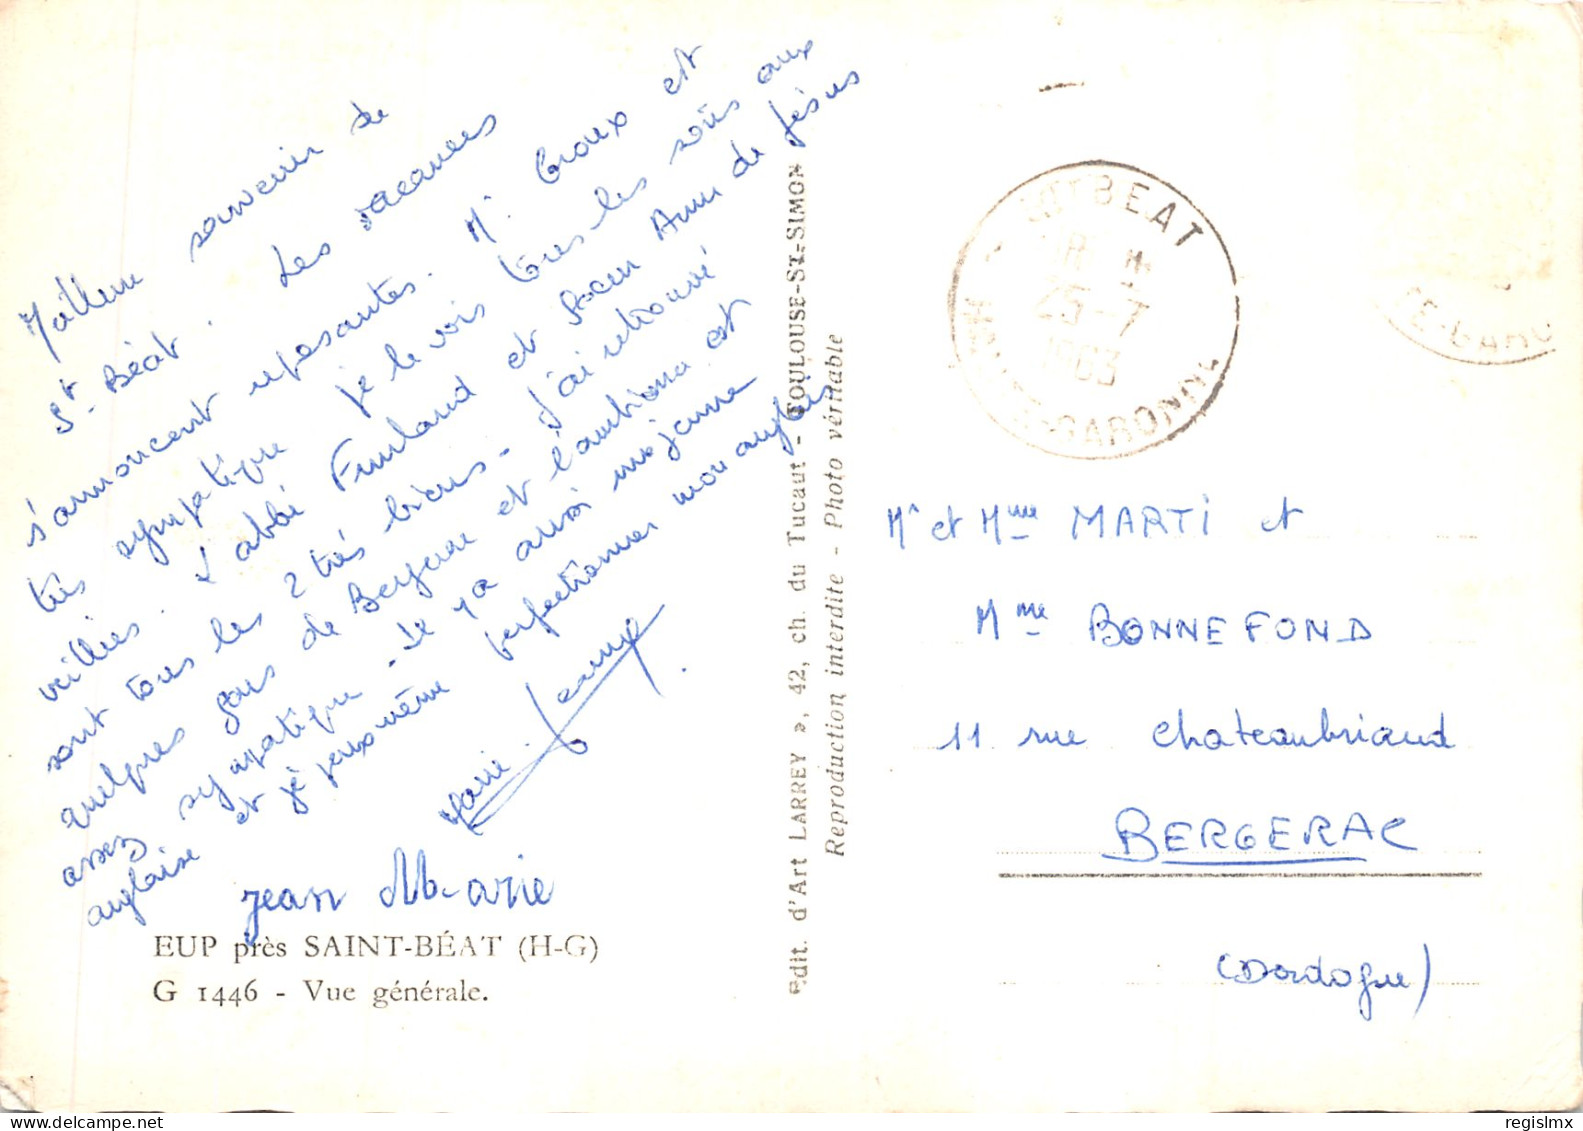 Meilleur souvenir de
St. Béat. Les vacances
s'annoncent reposantes. Mr Croux est
très sympatique je le vois tous les soirs aux
veillées. L'abbé et Soeur Anne de Jésus
sont tous les 2 très biens - J'ai retrouvé
quelques gars de Bergerac et l'ambiance est
assez sympatique - Il y a aussi une jeune
anglaise et je peux même perfectionner mon anglais
Marie
Jean Marie
EUP près SAINT-BÉAT (H-G)
G 1446 - Vue générale.
Edit. d'Art LARREY », 42, ch. du Tucaut - TOULOUSE-ST-SIMON
Reproduction interdite - Photo véritable
ST BEAT
18 H
25-7
1963
HAUTE-GARONNE
TE-GARO
Mr et Mme MARTI et
Mme BONNEFOND
11 rue Chateaubriand
BERGERAC
(Dordogne)
regislmx